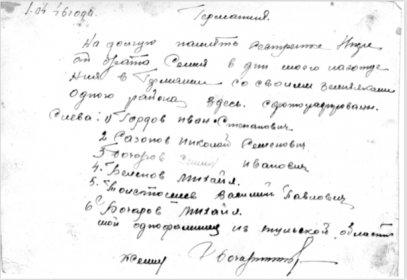 1.04 46 года. Германия.
На долгую память сестренке Нюре
от брата Семёна в дни моего нахожде
ния в Германии со своими земляками
одного района здесь сфотографированы.
Слева: 1) Гордов Иван Степанович
2 Сазонов Николай Семенович
3 Бочаров Семен Иванович
4. Михаил.
5. Толстошеев Василий Павлович
6 Бочаров Михаил.
мой однофамилец из Тульской области